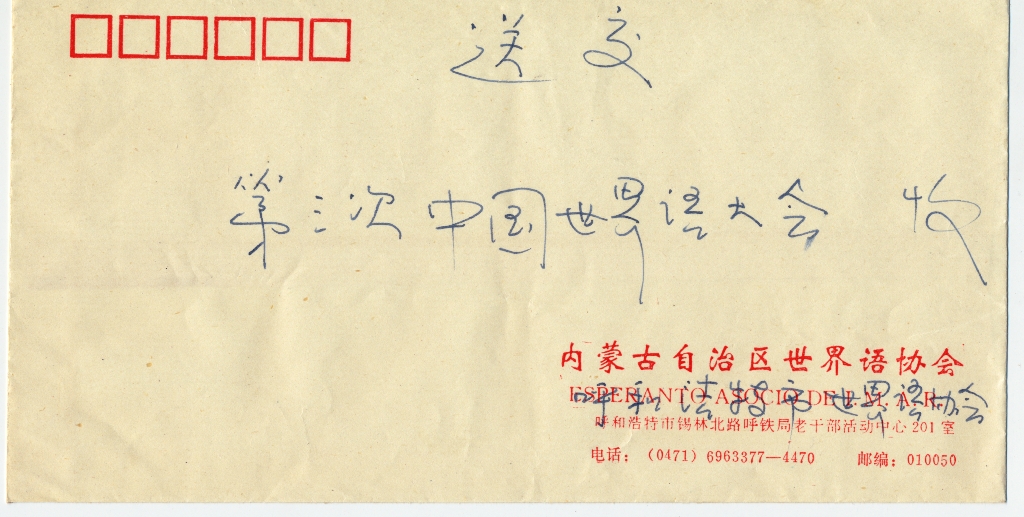 送交
第三次中国世界语大会 收
内蒙古自治区世界语协会
ESPERANTO ASOCIO DE I. M. A. R.
呼和浩特市世界语协会
呼和浩特市锡林北路呼铁局老干部活动中心 201 室
电话：（0471）6963377—4470 邮编：010050